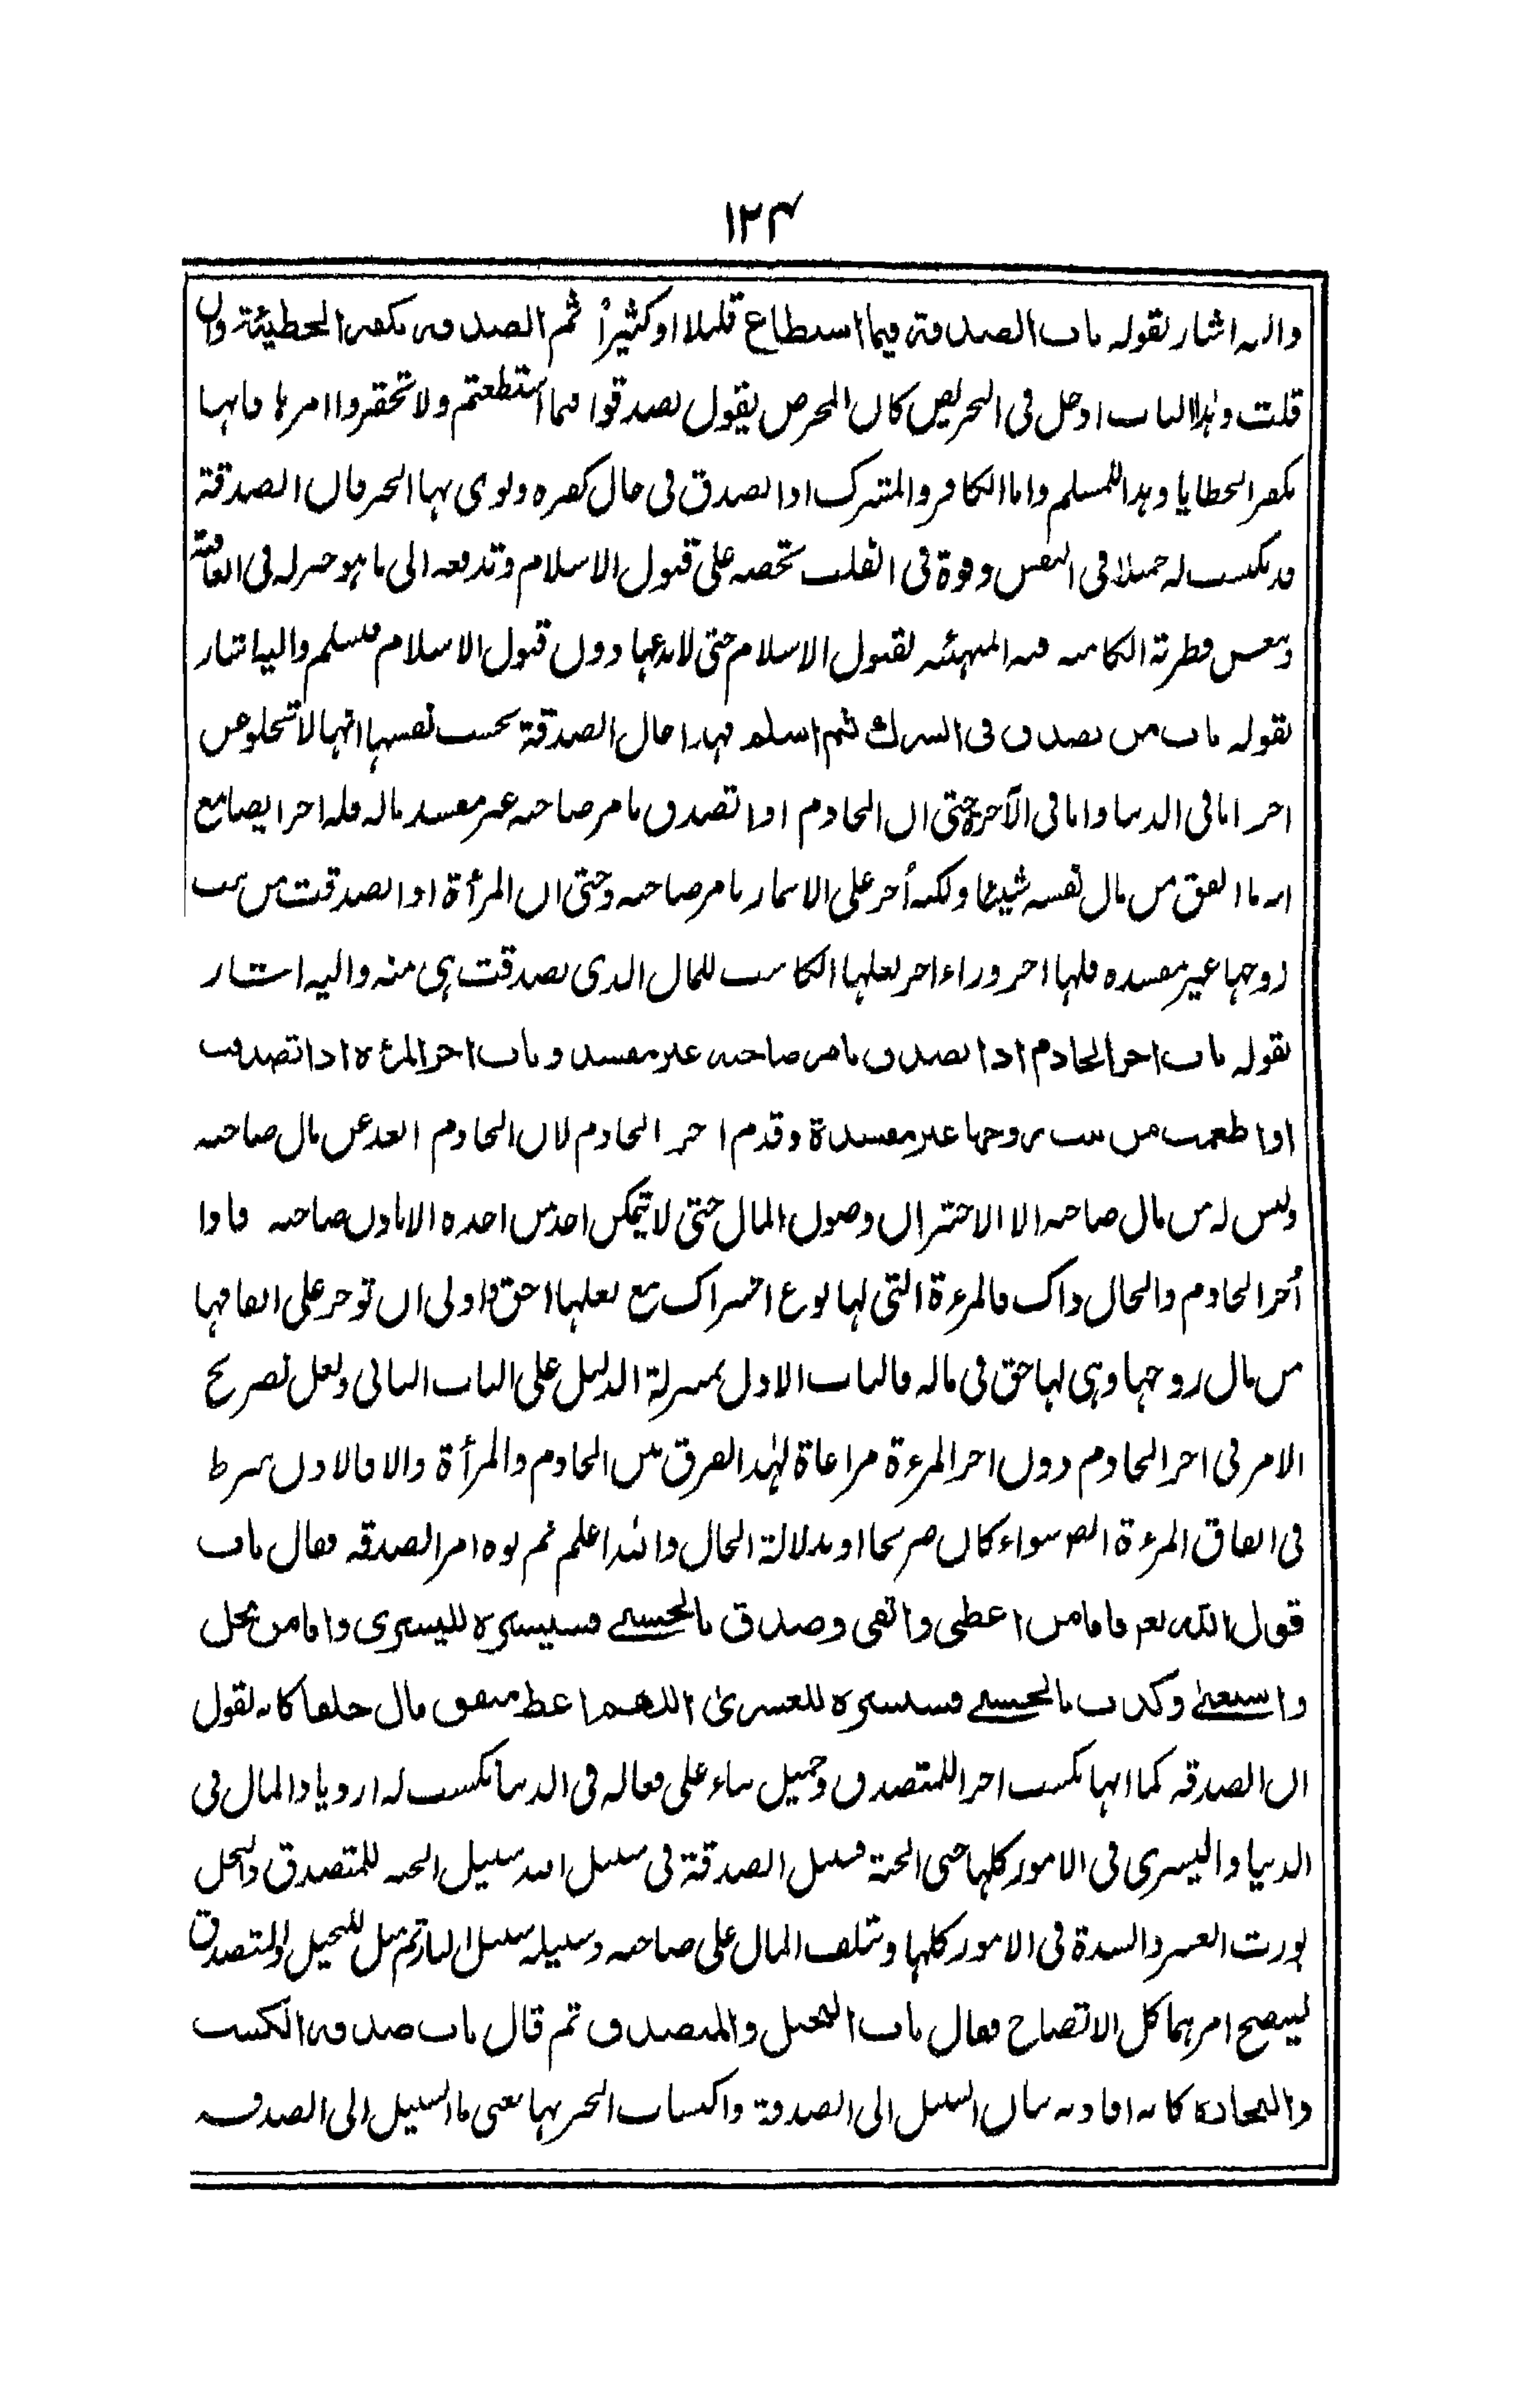 ١٢٤
واليه اشار بقوله باب الصدقة فيما استطاع قليلا او كثيراً ثم الصدقة تكفر الخطيئة وان
قلت وهذا الباب ادخل فى التحريض كان المحرض يقول تصدقوا فيما استطعتم ولا تحقروا امرها فانها
تكفر الخطايا وهذا للمسلم واما الكافر والمشرك اذا تصدق فى حال كفره ونوى بها الخير فان الصدقة
قد تكسب له جميلا فى النفس وقوة فى القلب تحضه على قبول الاسلام وتدفعه الى ما هو خير له فى العاقبة
فطرته الكامنة فيه المهيئة لقبول الاسلام حتى لا يدعها دون قبول الاسلام فيسلم واليه اشار
بقوله باب من تصدق فى الشرك ثم اسلم فهذا حال الصدقة بحسب نفسها انها لا تخلو عن
اجر اما فى الدنيا واما فى الآخرة حتى ان الخادم اذا تصدق بامر صاحبه غير مفسد ماله فله اجر ايضا مع
انه ما انفق من مال نفسه شيئا ولكنه أجر على الايتمار بامر صاحبه وحتى ان المرأة اذا تصدقت من بيت
زوجها غير مفسدة فلها اجر وراء اجر بعلها الكاسب للمال الذى تصدقت هى منه واليه اشار
بقوله باب اجر الخادم اذا تصدق بامر صاحبه غير مفسد وباب اجر المرءة اذا تصدقت
اواطعمت من بيت زوجها غير مفسدة وقدم اجر الخادم لان الخادم ابعد عن مال صاحبه
وليس له من مال صاحبه الا الاختزان وصون المال حتى لا يتمكن احد من اخذه الا باذن صاحبه فاذا
أجر الخادم والحال ذاك فالمرءة التى لها نوع اشتراك مع بعلها احق واولى ان توجر على انفاقها
من مال زوجها وهى لها حق فى ماله فالباب الاول بمنزلة الدليل على الباب الثانى ولعل تصريح
الامر فى اجر الخادم دون اجر المرءة مراعاة لهذا الفرق بين الخادم والمرأة والا فالاذن شرط
فى انفاق المرءة ايضا سواء كان صريحا او بدلالة الحال والله اعلم ثم نوه امر الصدقه فقال باب
قول الله تعم فاما من اعطى واتقى وصدق بالحسنى فسنيسره لليسرى واما من بخل
واستغنى وكذب بالحسنى فسنيسره للعسرىٰ اللهم اعط منفق مال خلفا كانه يقول
ان الصدقه كما انها تكسب اجرا للمتصدق وجميل ثناء على فعاله فى الدنيا تكسب له ازدياد المال فى
الدنيا واليسرى فى الامور كلها حتى الجنة فسبيل الصدقة فى سبيل الله سبيل الجنه للمتصدق والبخل
يورث العسر والشدة فى الامور كلها وتلف المال على صاحبه وسبيله سبيل النار ثم مثل للبخيل والمتصدق
ليتضح امرهما كل الاتضاح فقال باب البخيل والمتصدق ثم قال باب صدقه الكسب
والتجارة كانه افاد به بيان السبيل الى الصدقة واكتساب الخير بها يعنى ما السبيل الى الصدقه